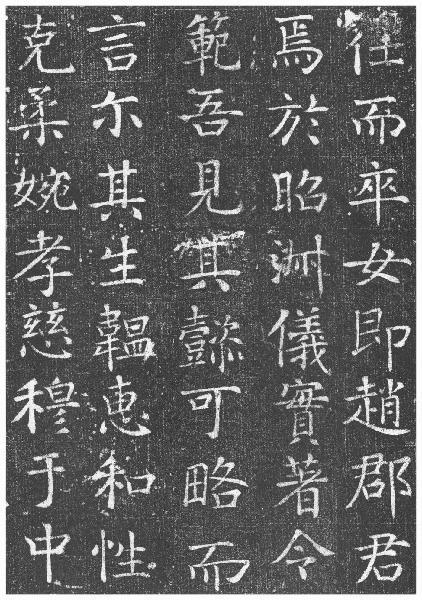 任而卒女即趙郡君
焉於昭淑儀實著令
範吾見其懿可略而
言尒其生韞恵和性
克柔婉孝慈穆于中